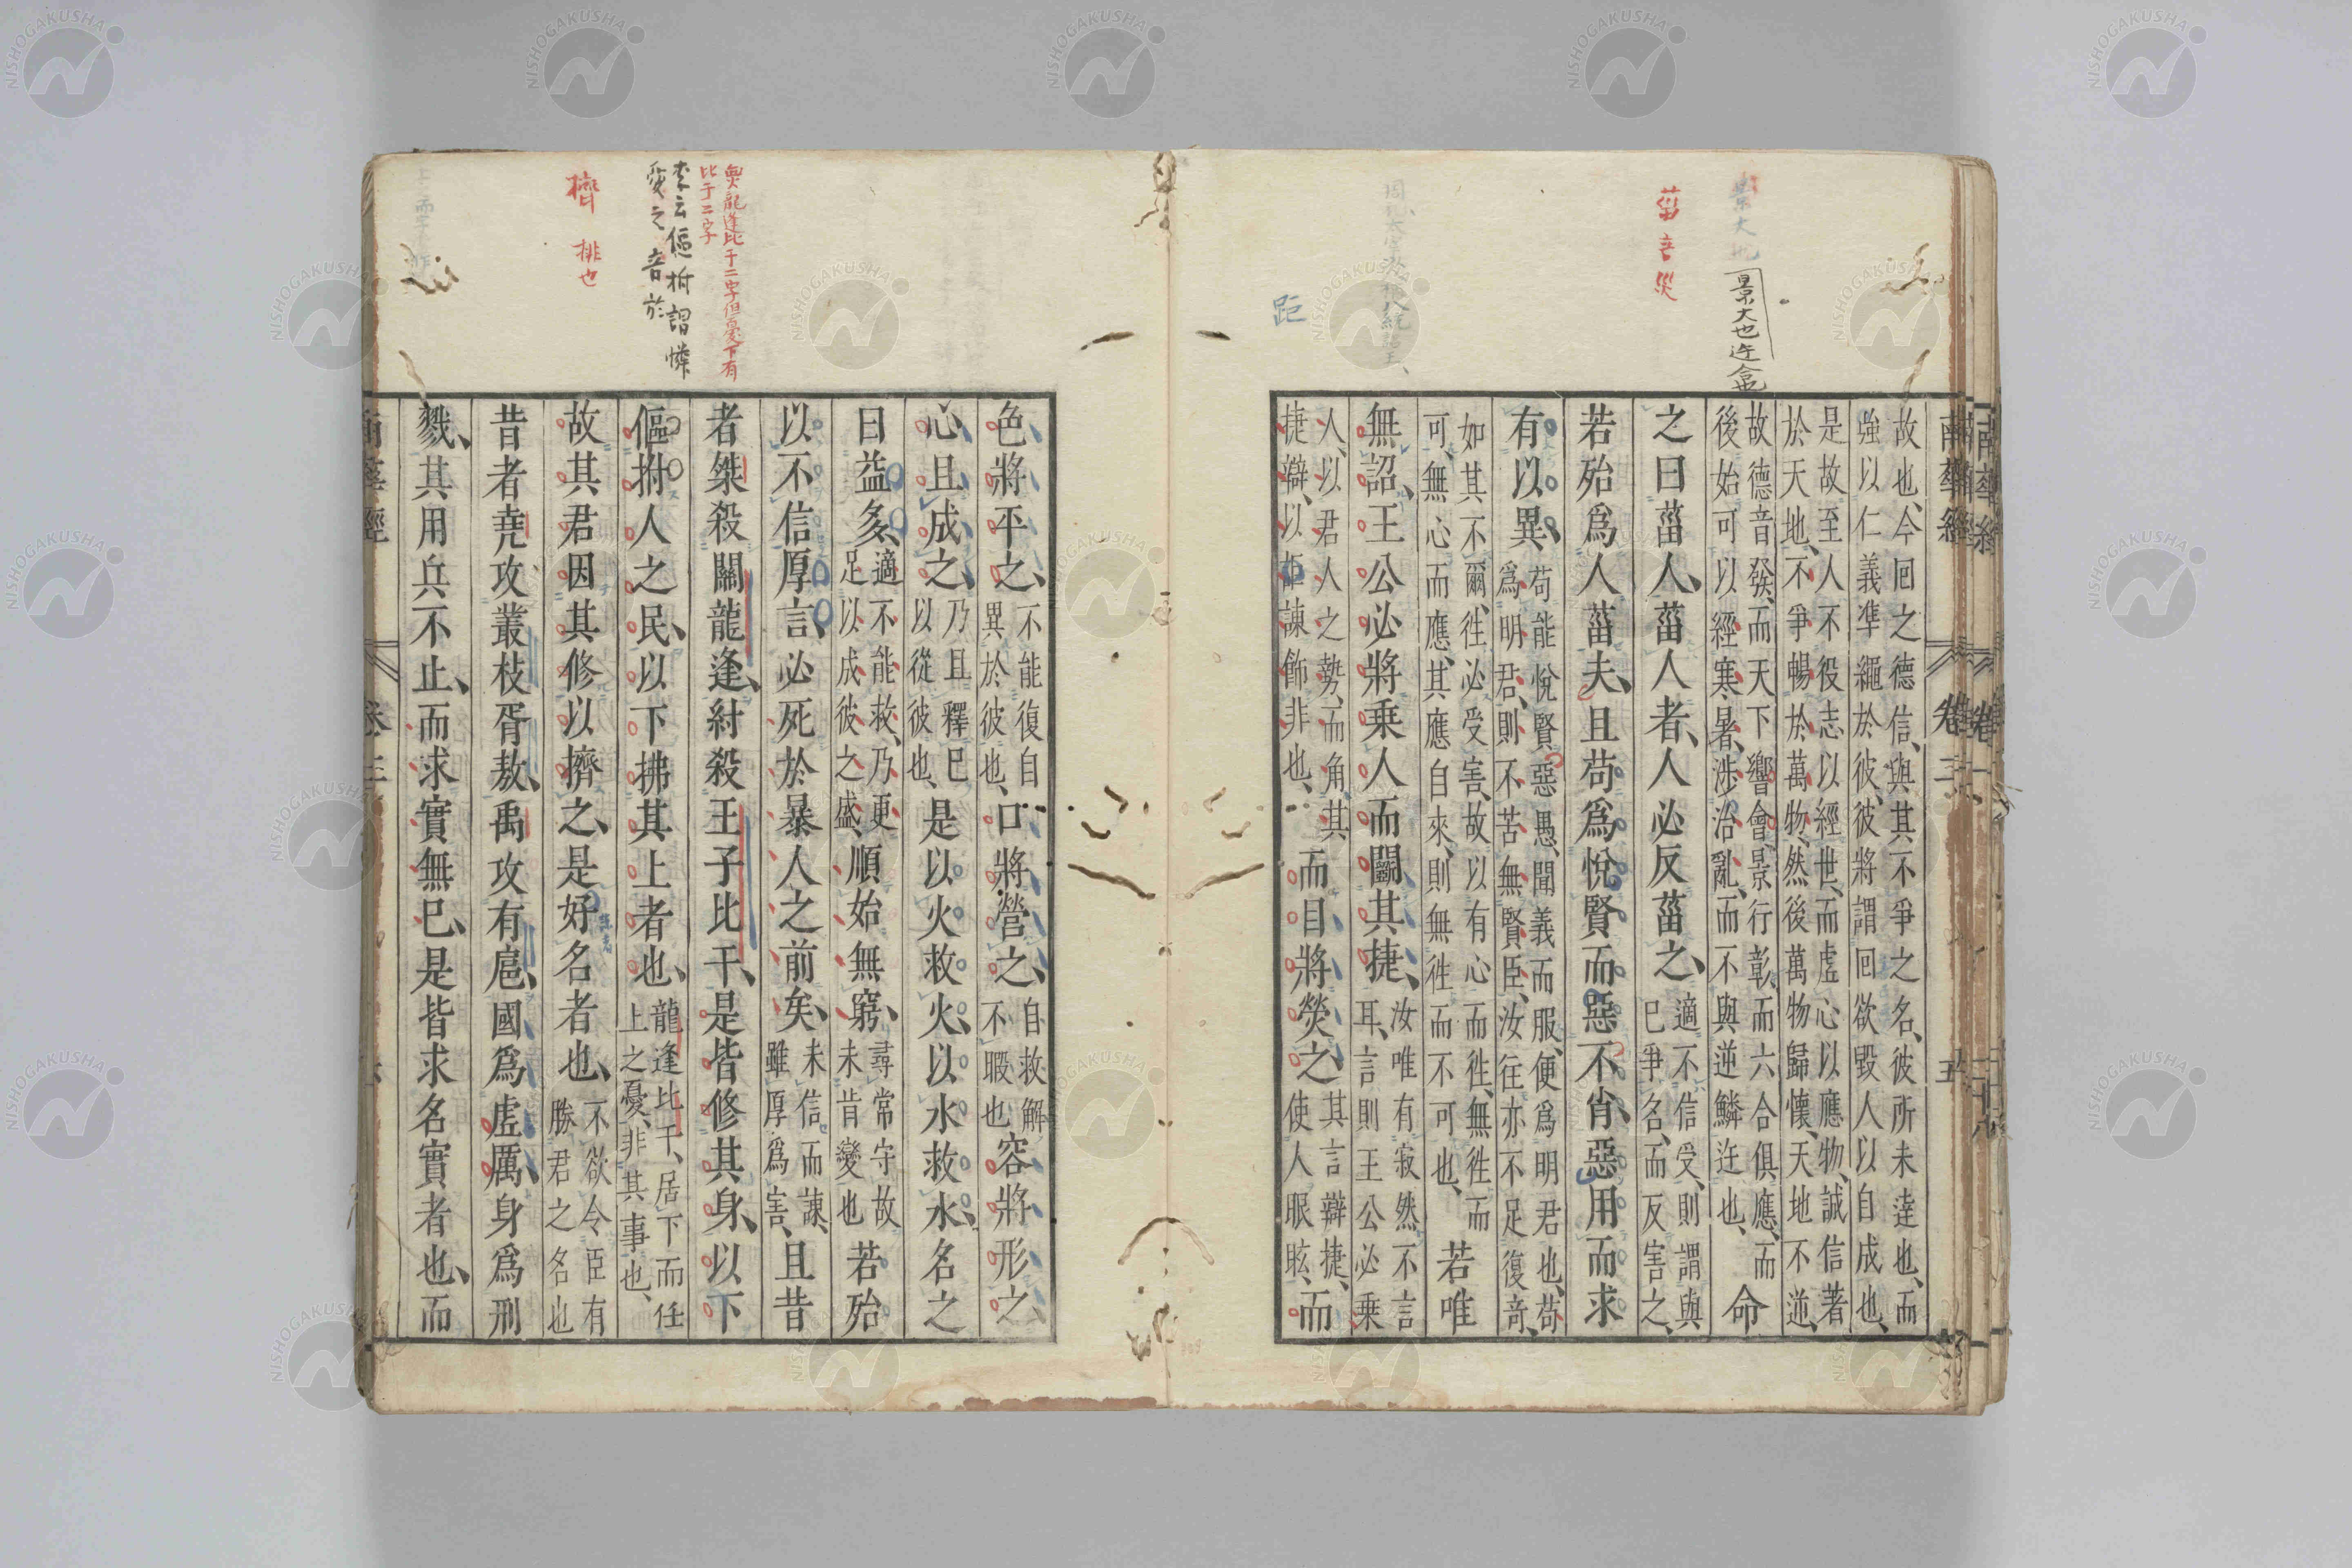 景大也
景大也迕合也
菑音災
距
南華經 卷二 五
故也、今回之德信、與其不爭之名、彼所未達也、而
強以仁義準繩於彼、彼將謂回欲毀人以自成也、
是故至人不役志以經世、而虛心以應物、誠信著
於天地、不爭暢於萬物、然後萬物歸懷、天地不逆、
故德音發、而天下響會、景行彰、而六合俱應、而
後始可以經寒暑、涉治亂、而不與逆鱗迕也、命
之曰菑人、菑人者、人必反菑之、適不信受、則謂與
已爭名、而反害之、
若殆爲人菑夫、且苟爲悅賢而惡不肖、惡用而求
有以異、苟能悅賢惡愚、聞義而服、便爲明君也、苟
爲明君、則不苦無賢臣、汝往亦不足復奇、
如其不爾、徃必受害、故以有心而徃、無徃而
可、無心而應、其應自來、則無徃而不可也、若唯
無詔、王公必將乗人而鬭其捷、汝唯有寂然不言
耳、言則王公必乗
人、以君人之勢、而角其
捷辯、以距諫飾非也、而目將熒之、其言辯捷、
使人眼眩、而
魚龍逢比干二字但憂下有
比于二字
李云傴拊謂憐
愛之音於
擠 排也
色將平之、不能復自
異於彼也、口將營之、自救解
不暇也容將形之、
心且成之、乃且釋已
以從彼也、是以火救火、以水救水、名之
曰益多、適不能救、乃更
足以成彼之盛、順始無窮、尋常守故
未肯變也若殆
以不信厚言、必死於暴人之前矣、未信而諫、
雖厚爲害、且昔
者桀殺關龍逢、紂殺王子比干、是皆修其身、以下
傴拊人之民、以下拂其上者也、龍逢比干、居下而任
上之憂、非其事也、
故其君因其修以擠之、是好名者也、不欲令臣有
勝君之名也
昔者堯攻叢枝胥敖、禹攻有扈、國爲虛厲、身爲刑
戮、其用兵不止、而求實無已、是皆求名實者也、而
南華經 卷二